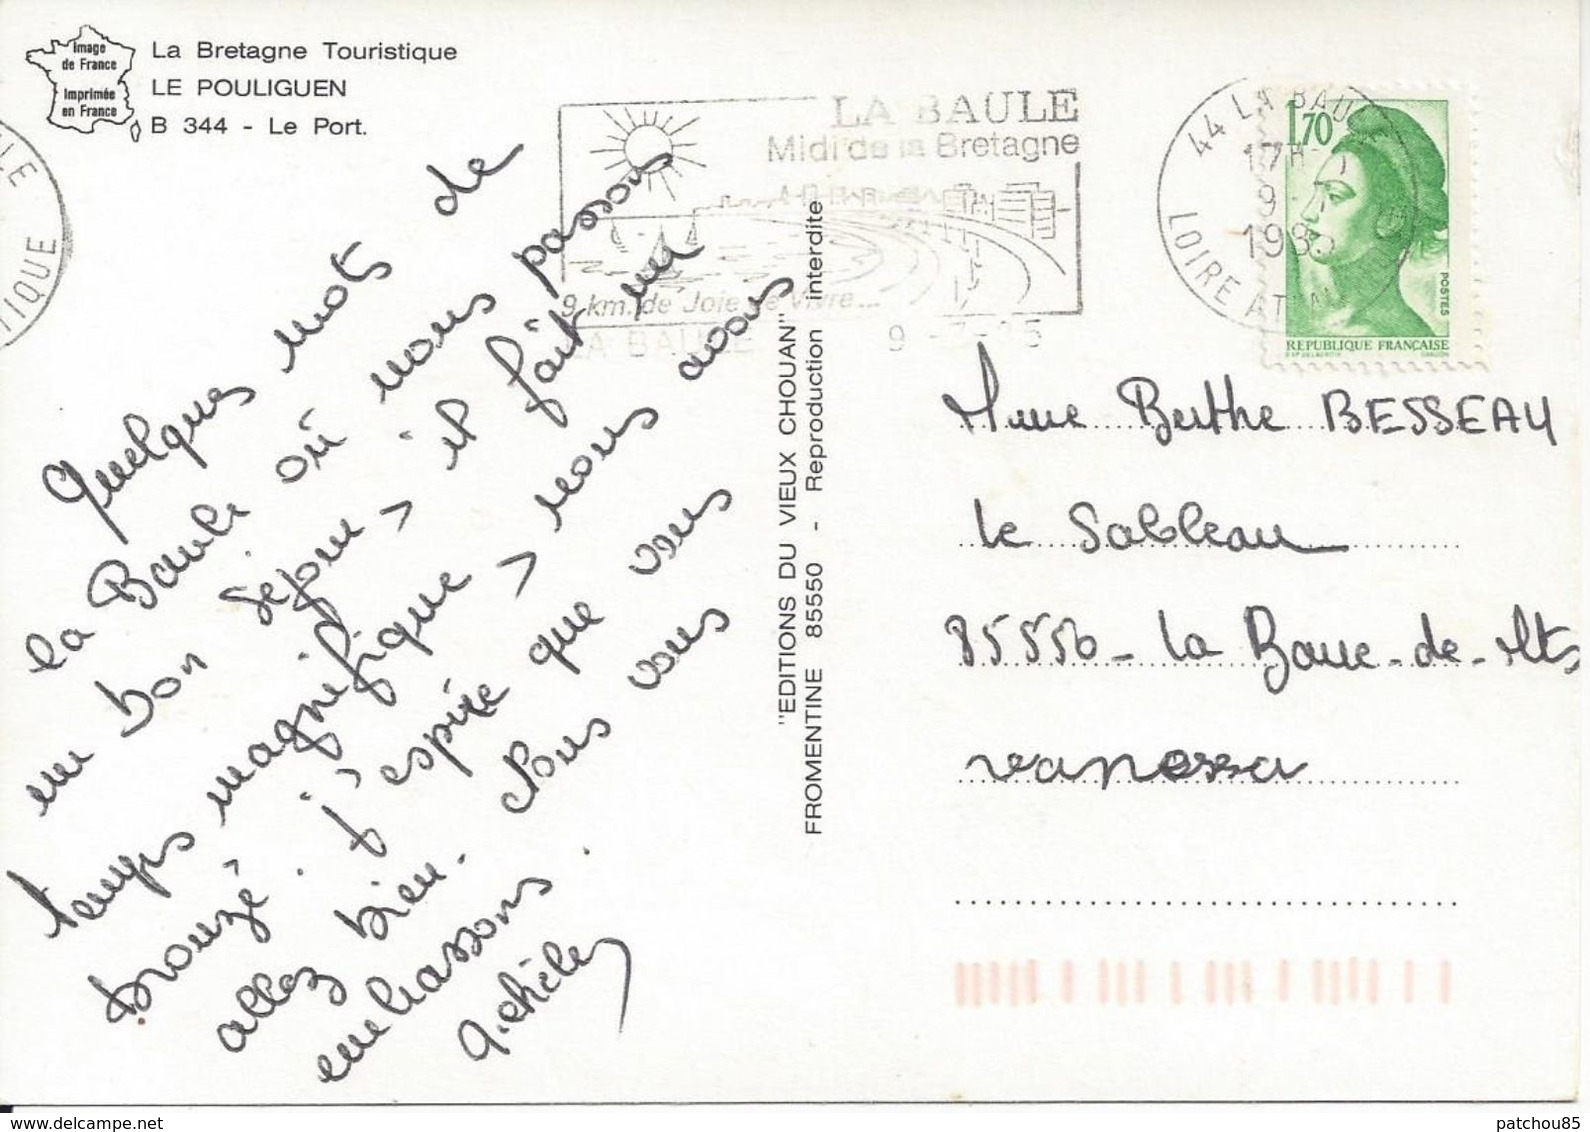 Image
de France
Imprimée
en France
La Bretagne Touristique
LE POULIGUEN
B 344 - Le Port.
LA BAULE
Midi de la Bretagne
9 km. de Joie de Vivre...
LA BAULE
44 LA BAULE
17H
9
LOIRE ATLAN
1,70
POSTES
REPUBLIQUE FRANÇAISE
Quelques mots de
la Baule où nous passons
un bon séjour, il fait un
temps magnifique, nous avons
bronzé. j'espère que vous
allez bien. Nous vous
embrassons.
"EDITIONS DU VIEUX CHOUAN"
FROMENTINE 85550 - Reproduction interdite
Mme Berthe BESSEAU
le Sableau
85550 - La Barre-de-Mts
vanessa
patchou85